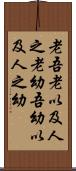 老吾老以及人
之老幼吾幼以
及人之幼